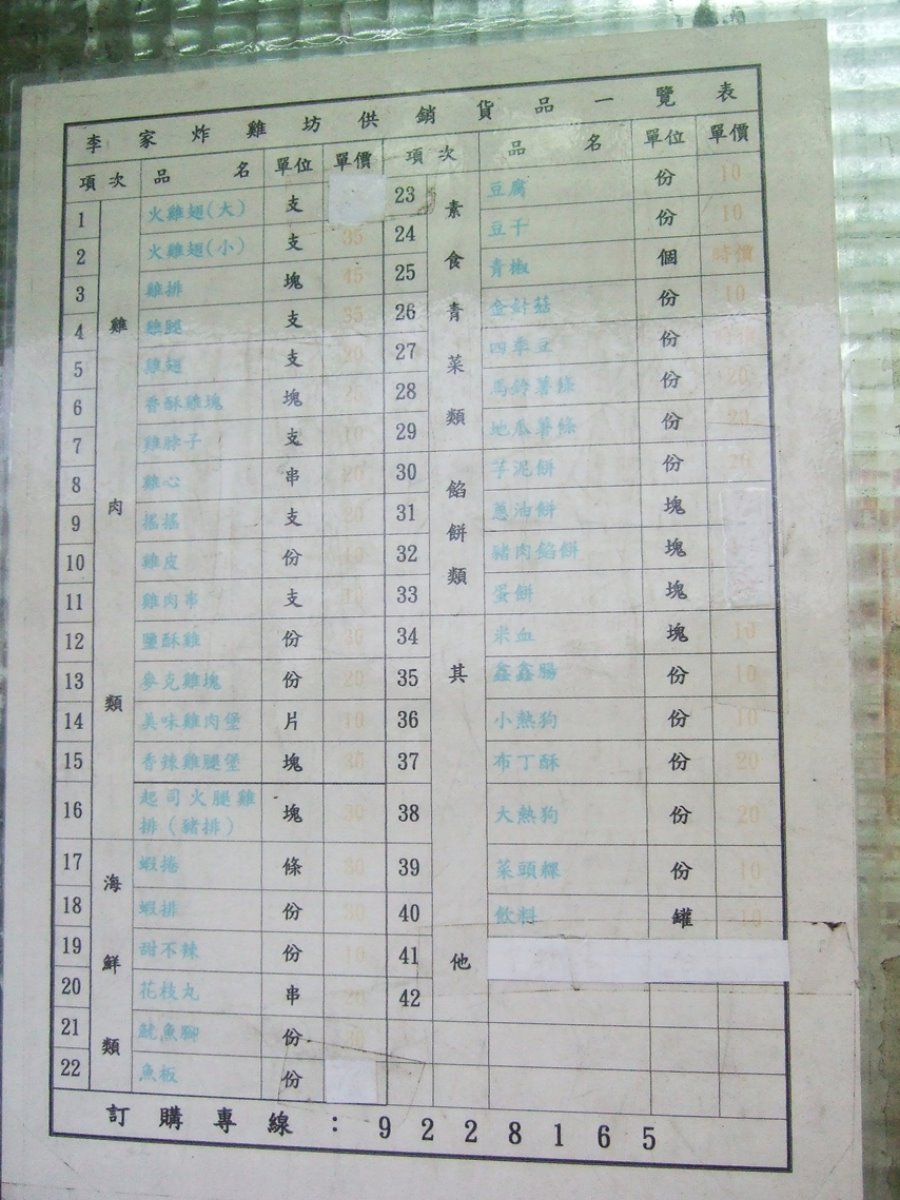 李家炸雞坊供銷貨品一覽表
項次 品名 單位 單價 項次 品名 單位 單價
雞肉類
1 火雞翅(大) 支
2 火雞翅(小) 支 35
3 雞排 塊 45
4 雞腿 支 35
5 雞翅 支
6 香酥雞塊 塊 25
7 雞脖子 支 10
8 雞心 串 20
9 搖搖 支 20
10 雞皮 份 10
11 雞肉串 支 10
12 鹽酥雞 份 30
13 麥克雞塊 份 20
14 美味雞肉堡 片 10
15 香辣雞腿堡 塊
16 起司火腿雞排(豬排) 塊 30
海鮮類
17 蝦捲 條 30
18 蝦排 份 30
19 甜不辣 份 10
20 花枝丸 串 20
21 魷魚腳 份
22 魚板 份
素食青菜類
23 豆腐 份 10
24 豆干 份 10
25 青椒 個 時價
26 金針菇 份 10
27 四季豆 份 時價
28 馬鈴薯條 份 20
29 地瓜薯條 份 20
餡餅類
30 芋泥餅 份 20
31 蔥油餅 塊
32 豬肉餡餅 塊
33 蛋餅 塊
其他
34 米血 塊 10
35 鑫鑫腸 份 10
36 小熱狗 份 10
37 布丁酥 份 20
38 大熱狗 份 20
39 菜頭粿 份 10
40 飲料 罐 10
41
42
訂購專線:9228165